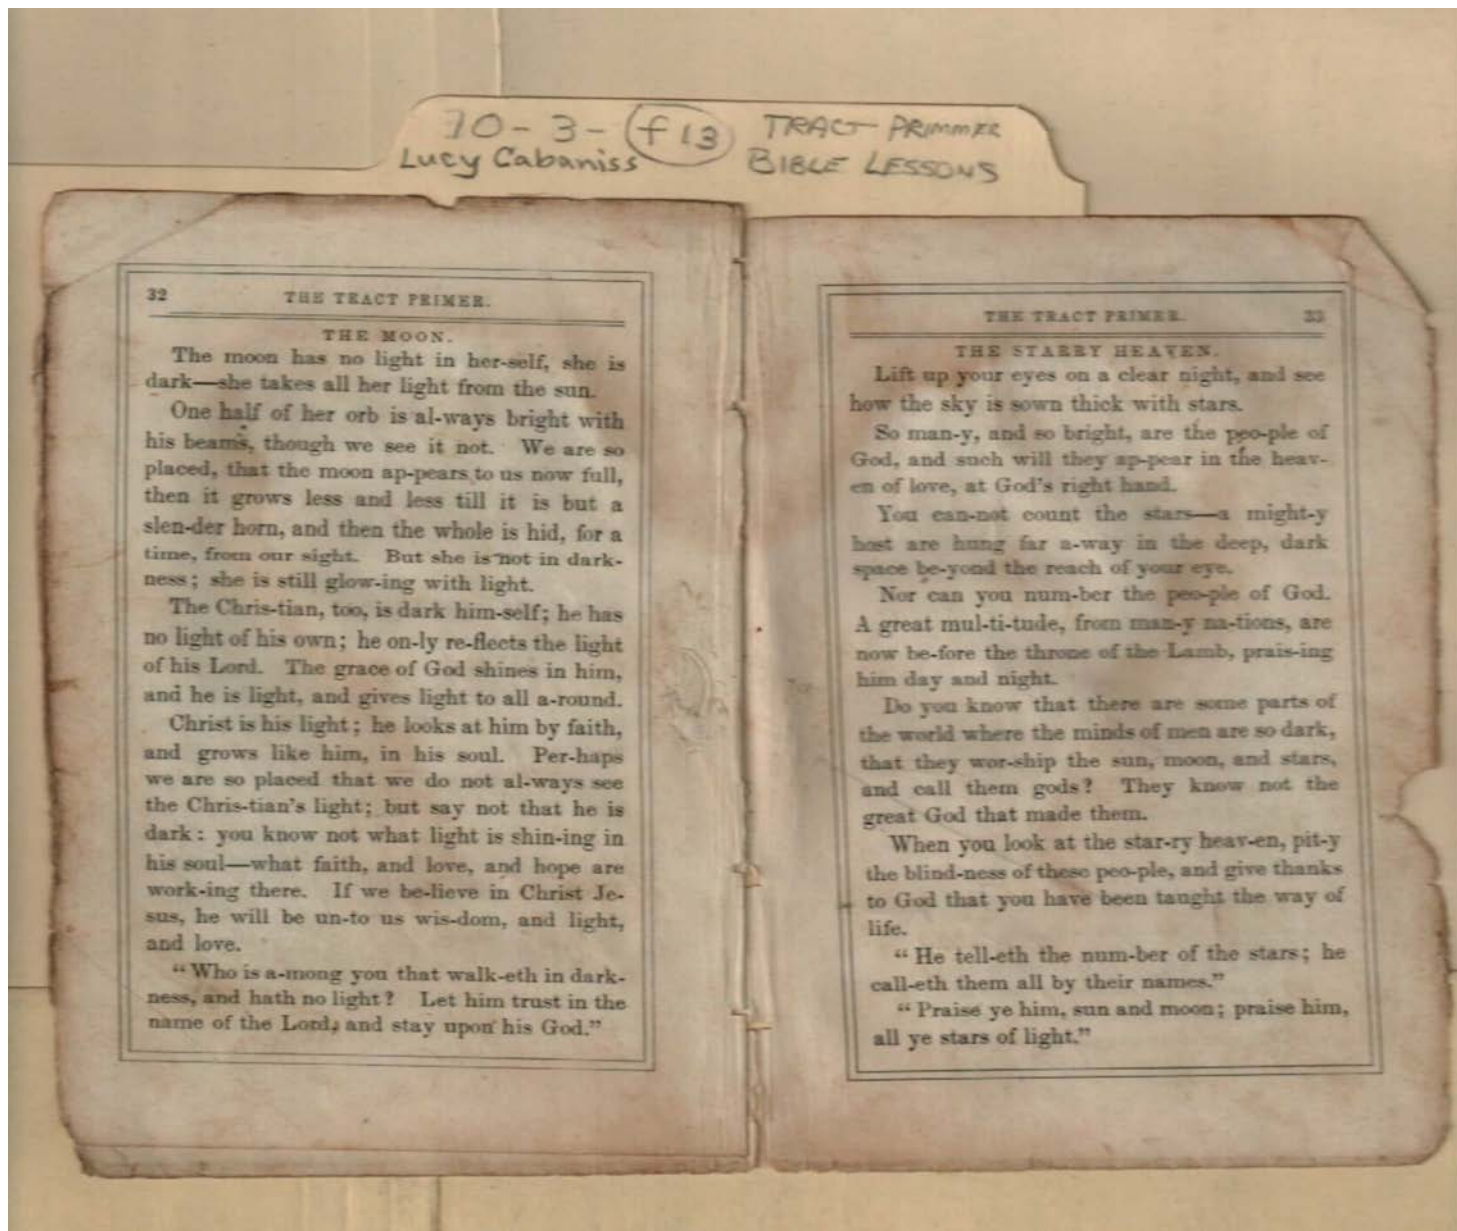 10-3-f13 TRACT PRIMMER
Lucy Cabaniss BIBLE LESSONS
32 THE TRACT PRIMER.
THE MOON.
The moon has no light in her-self, she is
dark—she takes all her light from the sun.
One half of her orb is al-ways bright with
his beams, though we see it not. We are so
placed, that the moon ap-pears to us now full,
then it grows less and less till it is but a
slen-der horn, and then the whole is hid, for a
time, from our sight. But she is not in dark-
ness; she is still glow-ing with light.
The Chris-tian, too, is dark him-self; he has
no light of his own; he on-ly re-flects the light
of his Lord. The grace of God shines in him,
and he is light, and gives light to all a-round.
Christ is his light; he looks at him by faith,
and grows like him, in his soul. Per-haps
we are so placed that we do not al-ways see
the Chris-tian's light; but say not that he is
dark: you know not what light is shin-ing in
his soul—what faith, and love, and hope are
work-ing there. If we be-lieve in Christ Je-
sus, he will be un-to us wis-dom, and light,
and love.
“Who is a-mong you that walk-eth in dark-
ness, and hath no light? Let him trust in the
name of the Lord, and stay upon his God.”
THE TRACT PRIMER. 33
THE STARRY HEAVEN.
Lift up your eyes on a clear night, and see
how the sky is sown thick with stars.
So man-y, and so bright, are the peo-ple of
God, and such will they ap-pear in the heav-
en of love, at God's right hand.
You can-not count the stars—a might-y
host are hung far a-way in the deep, dark
space be-yond the reach of your eye.
Nor can you num-ber the peo-ple of God.
A great mul-ti-tude, from man-y na-tions, are
now be-fore the throne of the Lamb, prais-ing
him day and night.
Do you know that there are some parts of
the world where the minds of men are so dark,
that they wor-ship the sun, moon, and stars,
and call them gods? They know not the
great God that made them.
When you look at the star-ry heav-en, pit-y
the blind-ness of these peo-ple, and give thanks
to God that you have been taught the way of
life.
“He tell-eth the num-ber of the stars; he
call-eth them all by their names.”
“Praise ye him, sun and moon; praise him,
all ye stars of light.”